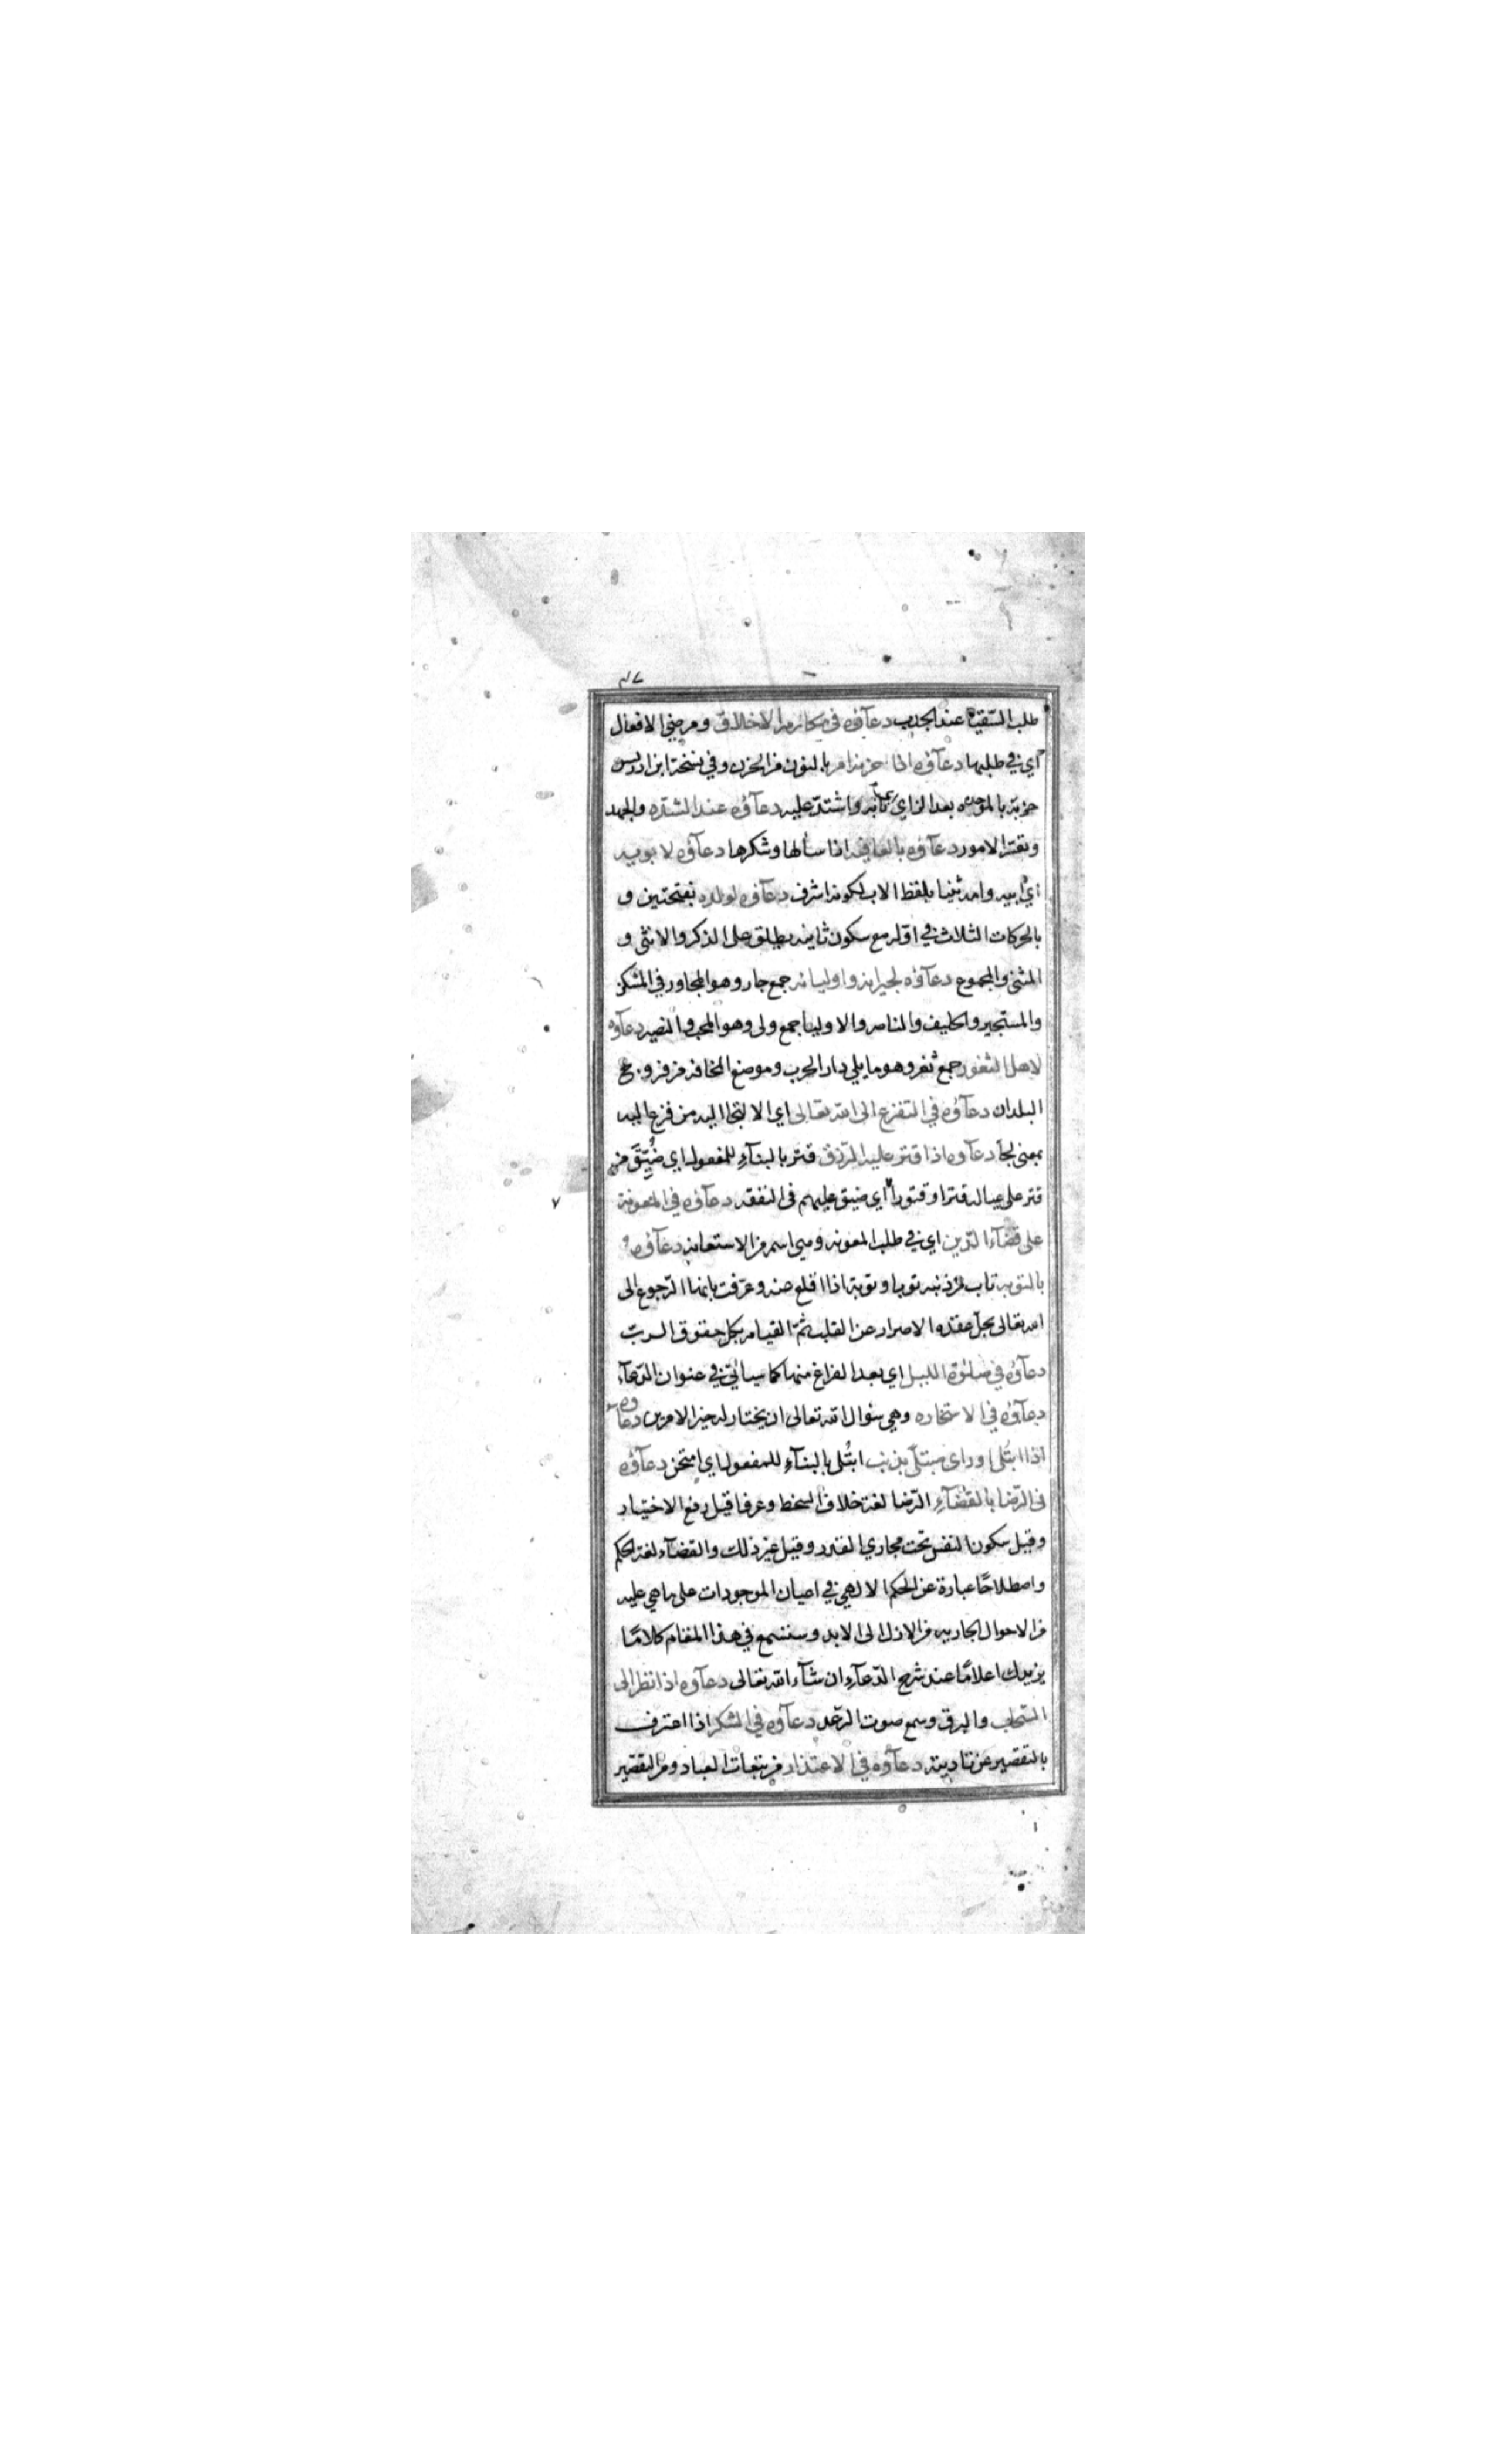 ٤٧
طلب السّقيا عند الجدب دعآؤه في مكارم الاخلاق ومرضيّ الافعال
اي في طلبها دعآؤه اذا حزنه امر بالنون من الحزن وفي نسخة ابن ادريس
حزبه بالموحده بعد الزاي اي نابه واشتدّ عليه دعآؤه عند الشدّه والجهد
وتعسّر الامور دعآؤه بالعافيه اذا سألها وشكرها دعآؤه لابويه
اي ابيه وامه ثنيا بلفظ الاب لكونه اشرف دعآؤه لولده بفتحتين و
بالحركات الثلاث في اوّله مع سكون ثانيه يطلق على الذكر والانثى و
المثنى والمجموع دعآؤه لجيرانه واوليائه جمع جار وهو المجاور في المسكن
والمستجير والحليف والناصر والاوليا جمع ولي وهو المحب والنصير دعآؤه
لاهل الثغور جمع ثغر وهو ما يلي دار الحرب وموضع المخافه من فروج
البلدان دعآؤه في التفزع الى الله تعالى اي الالتجا اليه من فزع اليه
بمعنى لجأ دعآؤه اذا قتر عليه الرّزق قتر بالبنآءِ للمفعول اي ضُيِّقَ من
قتر على عياله قترا وقتورا اي ضيق عليهم في النفقه دعآؤه في المعونة
على قضآء الدّين اي في طلب المعونه وهي اسم من الاستعانه دعآؤه
بالتوبه تاب من ذنبه توبا وتوبة اذا اقلع عنه وعرّفت بانها الرّجوع الى
الله تعالى بحلّ عقده الاصرار عن القلب ثمّ القيام بكل حقوق الربّ
دعآؤه في صلوٰة الليل اي بعد الفراغ منها كما سيأتي في عنوان الدّعآء
دعآؤه في الاستخاره وهي سؤال الله تعالى ان يختار له خير الامرين دعآؤه
اذا ابتُلى او راى مبتلًى بذنب ابتُلى بالبنآءِ للمفعول اي امتحن دعآؤه
في الرّضا بالقضآءِ الرّضا لغة خلاف السخط وعرفا قيل رفع الاختيار
وقيل سكون النفس تحت مجاري القدر وقيل غير ذلك والقضآء لغة الحكم
واصطلاحًا عبارة عن الحكم الالهي في اعيان الموجودات على ما هي عليه
من الاحوال الجاريه من الازل الى الابد وستسمع في هذا المقام كلامًا
يزيدك اعلامًا عند شرح الدّعآءِ ان شآء الله تعالى دعآؤه اذا نظر الى
السّحاب والبرق وسمع صوت الرّعد دعآؤه في الشكر اذا اعترف
بالتقصير عن تاديته دعآؤه في الاعتذار من تبعات العباد ومن التقصير